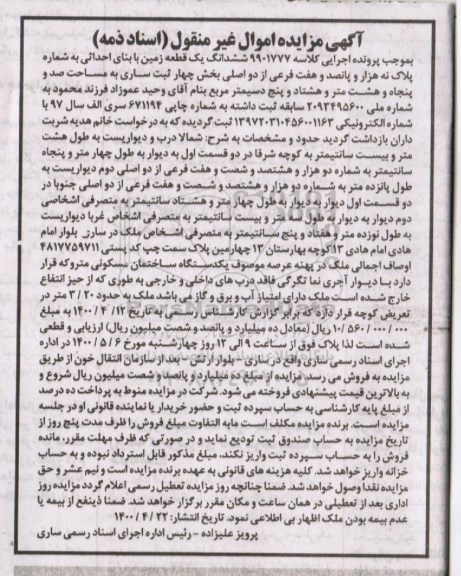 آگهی مزایده اموال غیر منقول (اسناد ذمه)
بموجب پرونده اجرایی کلاسه ۹۹۰۱۷۷۷ ششدانگ یک قطعه زمین با بنای احداثی به شماره
پلاک نه هزار و پانصد و هفت فرعی از دو اصلی بخش چهار ثبت ساری به مساحت صد و
پنجاه و هشت متر و هشتاد و پنج دسیمتر مربع بنام آقای وحید عموزاد فرزند محمود به
شماره ملی ۲۰۹۳۴۹۵۶۰۰ سابقه ثبت داشته به شماره چاپی ۶۷۱۱۹۴ سری الف سال ۹۷ با
شماره الکترونیکی ۱۳۹۷۲۰۳۱۰۴۵۶۰۰۱۱۶۳ ثبت گردیده که به درخواست خانم هدیه شربت
داران بازداشت گردید حدود و مشخصات به شرح: شمالا درب و دیواریست به طول هشت
متر و بیست سانتیمتر به کوچه شرقا در دو قسمت اول به دیوار به طول چهار متر و پنجاه
سانتیمتر به شماره دو هزار و هشتصد و شصت و هفت فرعی از دو اصلی دوم دیواریست به
طول پانزده متر به شماره دو هزار و هشتصد و شصت و هفت فرعی از دو اصلی جنوبا در
دو قسمت اول دیوار به دیوار به طول چهار متر و هشتاد سانتیمتر به متصرفی اشخاصی
دوم دیوار به دیوار به طول سه متر و بیست سانتیمتر به متصرفی اشخاص غربا دیواریست
به طول نوزده متر و هفتاد و پنج سانتیمتر به متصرفی اشخاص ملک در ساری بلوار امام
هادی امام هادی ۱۳ کوچه بهارستان ۱۳ چهارمین پلاک سمت چپ کد پستی ۴۸۱۷۷۵۹۷۱۱
اوصاف اجمالی ملک در پهنه عرصه موصوف یکدستگاه ساختمان مسکونی متروکه قرار
دارد با دیوار آجری نما تگرگی فاقد درب های داخلی و خارجی به طوری که از حیز انتفاع
خارج شده است ملک دارای امتیاز آب و برق و گاز می باشد ملک به حدود ۳/۲۰ متر در
تعریض کوچه قرار دارد که برابر گزارش کارشناس رسمی به تاریخ ۱۴۰۰/۴/۱۲ به مبلغ
۱۰/۵۶۰/۰۰۰/۰۰۰ ریال (معادل ده میلیارد و پانصد و شصت میلیون ریال) ارزیابی و قطعی
شده است لذا پلاک فوق از ساعت ۹ الی ۱۲ روز چهارشنبه مورخ ۱۴۰۰/۵/۶ در اداره
اجرای اسناد رسمی ساری واقع در ساری - بلوار ارتش - بعد از سازمان انتقال خون از طریق
مزایده به فروش می رسد. مزایده از مبلغ ده میلیارد و پانصد و شصت میلیون ریال شروع و
به بالاترین قیمت پیشنهادی فروخته می شود. شرکت در مزایده منوط به پرداخت ده درصد
از مبلغ پایه کارشناسی به حساب سپرده ثبت و حضور خریدار یا نماینده قانونی او در جلسه
مزایده است. برنده مزایده مکلف است مابه التفاوت مبلغ فروش را ظرف مدت پنج روز از
تاریخ مزایده به حساب صندوق ثبت تودیع نماید و در صورتی که ظرف مهلت مقرر، مانده
فروش را به حساب سپرده ثبت واریز نکند، مبلغ مذکور قابل استرداد نبوده و به حساب
خزانه واریز خواهد شد. کلیه هزینه های قانونی به عهده برنده مزایده است و نیم عشر و حق
مزایده نقدا وصول خواهد شد. ضمنا چنانچه روز مزایده تعطیل رسمی اعلام گردد مزایده روز
اداری بعد از تعطیلی در همان ساعت و مکان مقرر برگزار خواهد شد. ضمنا ذینفع از بیمه یا
عدم بیمه بودن ملک اظهار بی اطلاعی نمود. تاریخ انتشار: ۱۴۰۰/۴/۲۲
پرویز علیزاده - رئیس اداره اجرای اسناد رسمی ساری